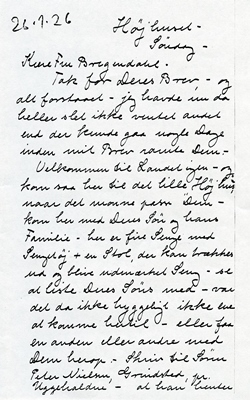 26.7.26
Højhuset -
Søndag -
Kære Fru Bregendahl.
Tak for Deres Brev - og
alt forstaaet - jeg havde nu da
heller slet ikke ventet andet
end der kunde gaa nogle Dage
inden mit Brev naaede Dem -
Velkommen til Landet igen - og
kom saa her til det lille Højhus,
naar det monne passe Dem -
kom her med Deres Søn og hans
Familie - her er fire Senge med
Sengetøj + en Stol, der kan trækkes
ud og blive udmærket Seng - se
at liste Deres Søns med - var
det da ikke hyggeligt ikke ene
at komme hertil - eller faa
en anden eller andre med
Dem herop - Skriv til Søren
Peter Nielsen, Grindsted pr.
- at han henter